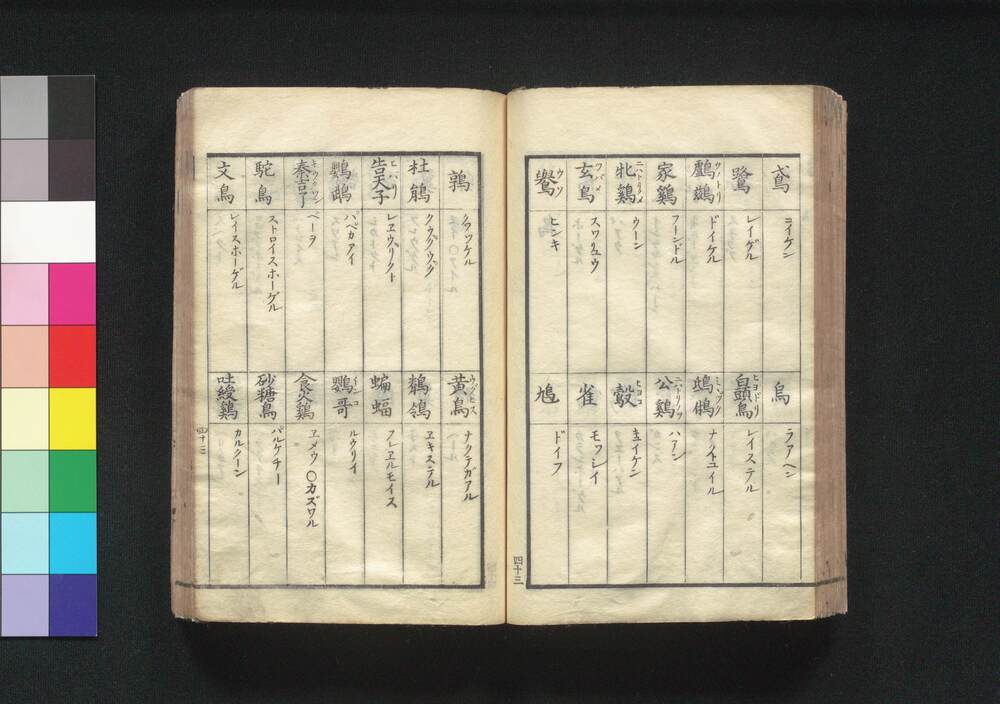 鳶 ヨイケン
鷺 レイゲル
鸕鷀 ウノトリ ドイケル
家鷄 フーンドル
牝鷄 ニハトリノメ ウーン
玄鳥 ツバメ スワリュウ
鷽 ウソ ヒンキ
烏 ラアヘン
白頭鳥 ヒヨドリ レイステル
鴟鵂 ミヽヅク ナクトユイル
公鷄 ニハトリノヲ ハアン
鷇 ヒヨコ キュイゲン
雀 モッシイ
鳩 ドイフ
四十三
鶉 クワツケル
杜鵑 クウグウグ
告天子 ヒバリ レヱウヴリクト
鸚鵡 パペカアイ
秦吉了 キウクワン ベーラ
駝鳥 ストロイスホーゲル
文鳥 レイスホーゲル
黄鳥 ウグヒス ナクテガアル
鶺鴒 ヱキステル
蝙蝠 フレヱルモイス
鸚哥 インコ ルウリイ
食火鷄 ヱメウ〇カズワル
砂糖鳥 パルケチー
吐綬鷄 カルクーン
四十三